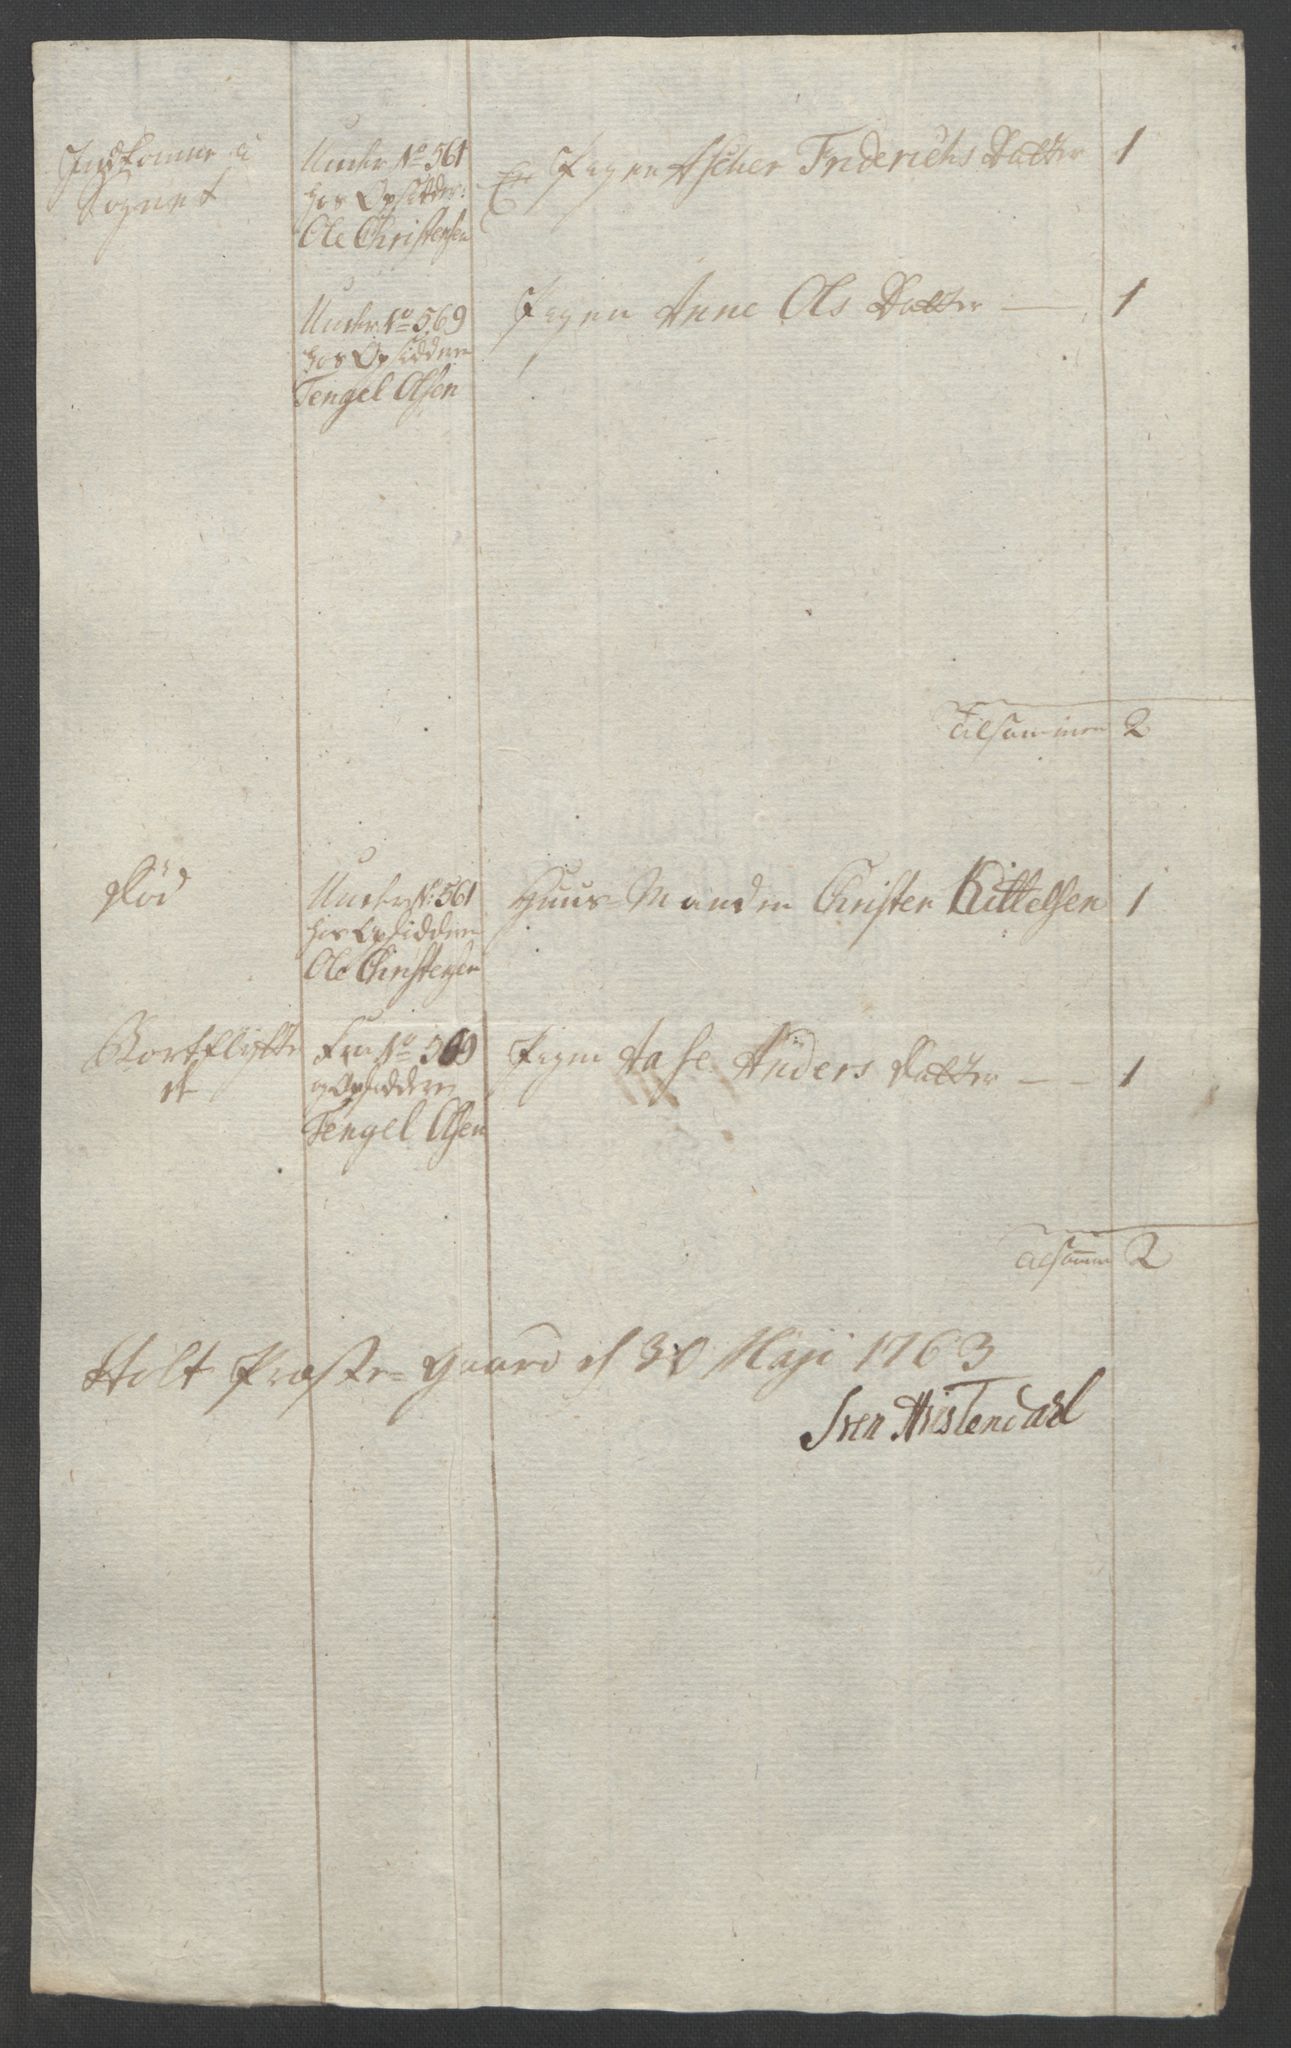 Indkomne i
Sognet
Under No 561
hos Opsidder:
Ole Christensen
En Pigen Ascher Friderichs Datter 1
Under No 569
hos Opsiddere
Tengel Olsen
Pigen Anne Ols Datter — 1
Tilsammen 2
Død
Under No: 561
hos Opsiddere
Ole Christensen
Huus-Manden Christen Kittelsen 1
Bortflytte
t
Fra No 569
Opsiddere
Tengel Olsen
Pigen Aase Anders Datter — 1
Tilsamm̅ 2
Holt Præste-Gaard d 30 Maji 1763
Sven Avistendahl